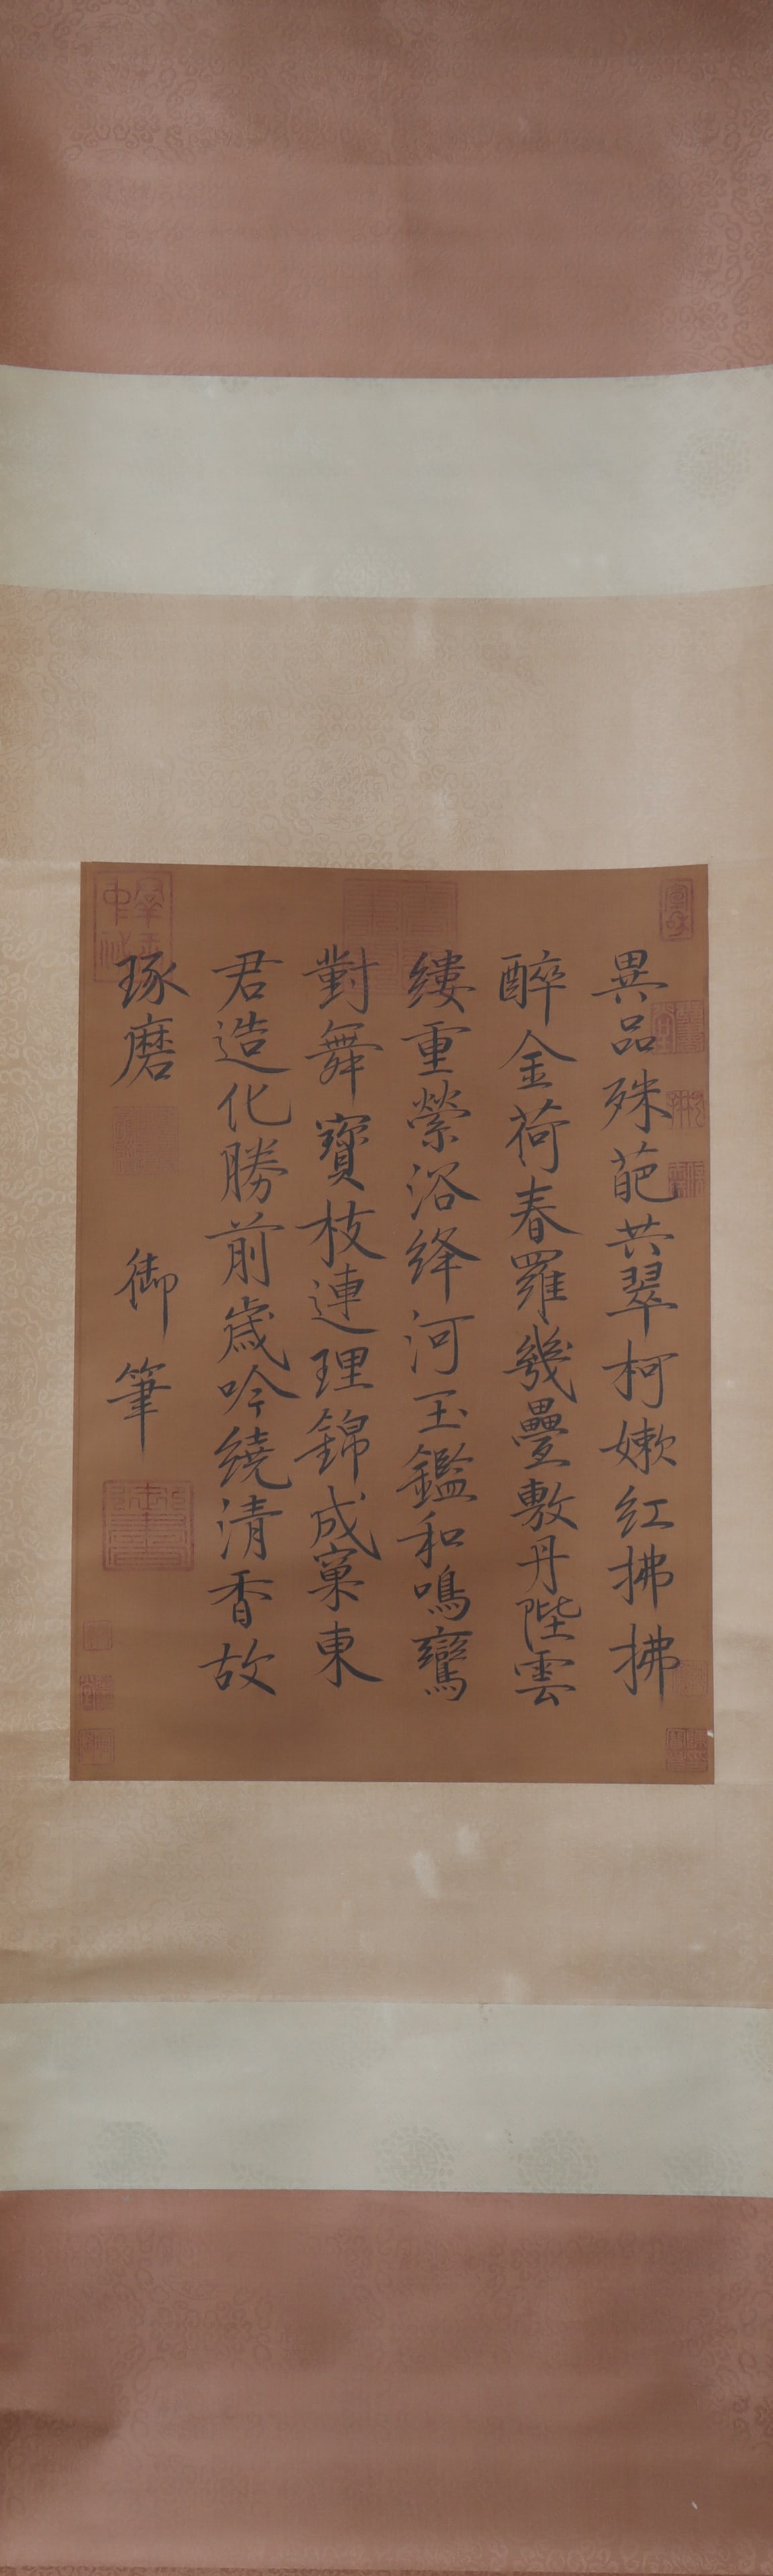 異品殊葩共翠柯嫩紅拂拂
醉金荷春羅幾疊敷丹陛雲
縷重縈浴絳河玉鑑和鳴鸞
對舞寶枝連理錦成窠東
君造化勝前歲吟繞清香故
琢磨
御筆